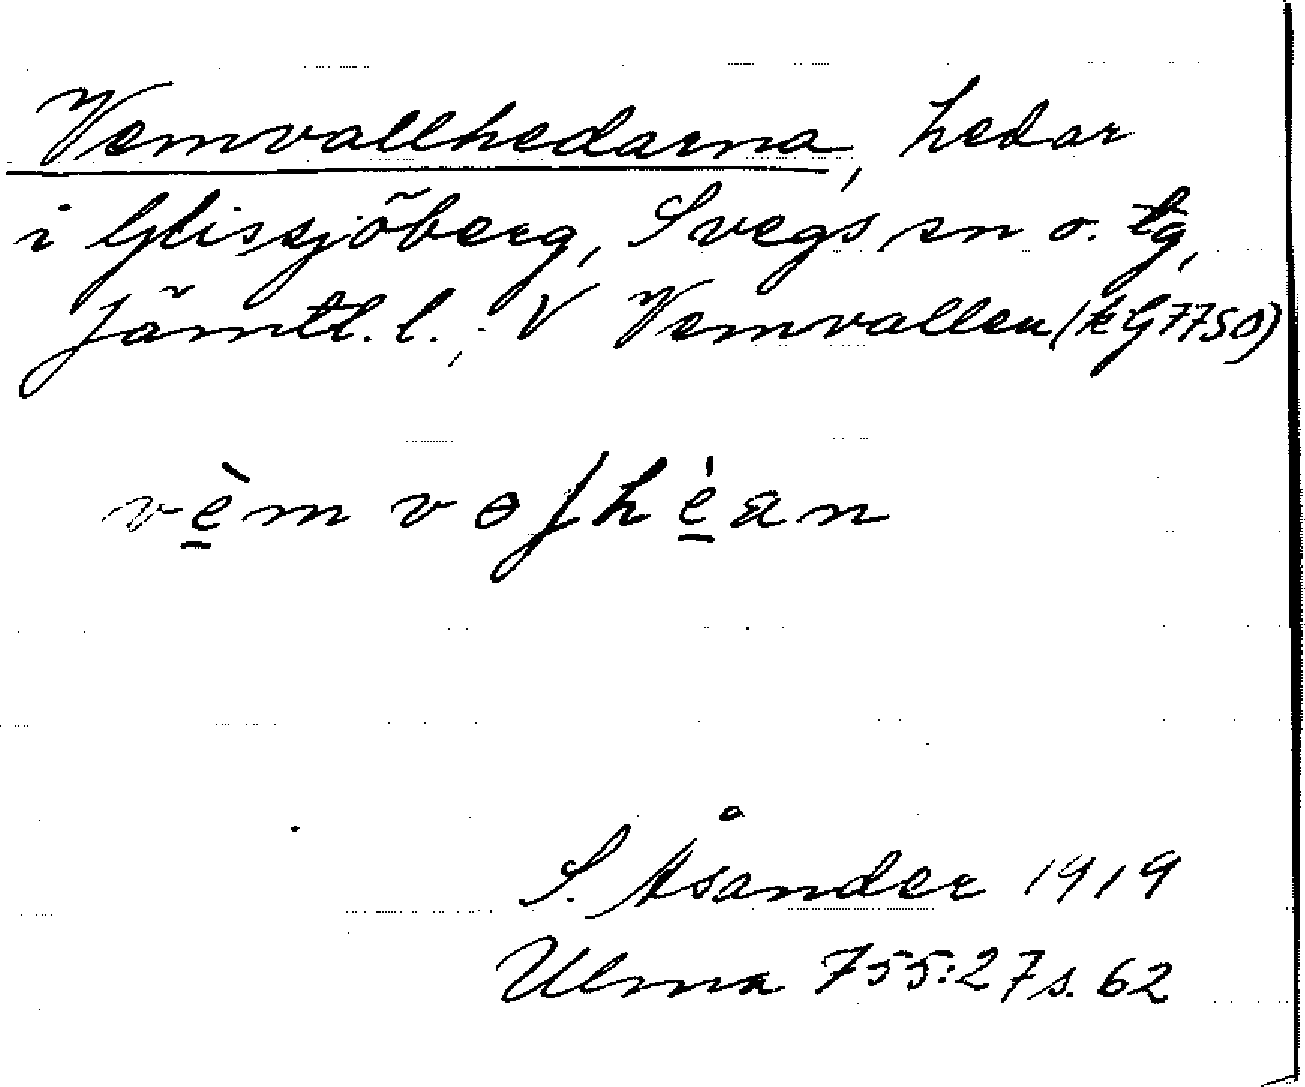 Vemvallhedarna, hedar
i Glissjöberg, Svegs sn o. tg,
Jämtl. l.; V Vemvallen (kG7750)
vèm vɵʃhéan
S. Åsander 1919
Ulma 755:27 s. 62